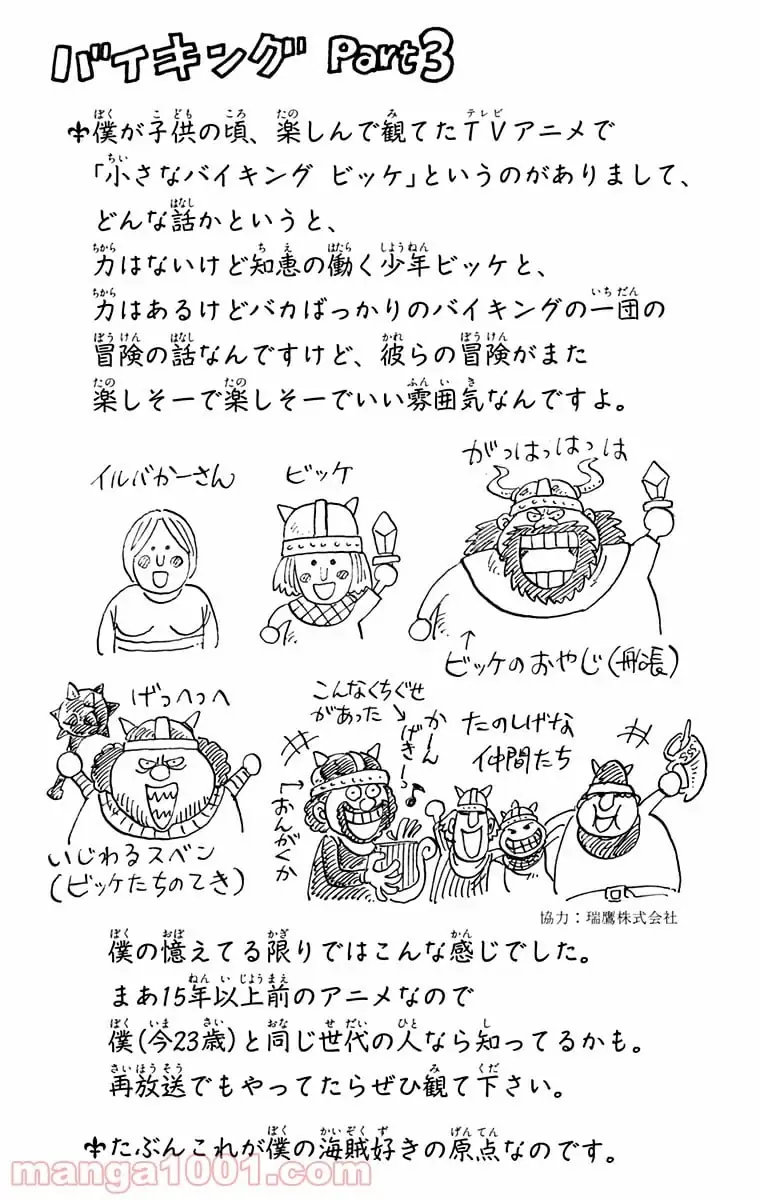 バイキング Part3
⚜僕が子供の頃、楽しんで観てたTVアニメで
「小さなバイキング ビッケ」というのがありまして、
どんな話かというと、
力はないけど知恵の働く少年ビッケと、
力はあるけどバカばっかりのバイキングの一団の
冒険の話なんですけど、彼らの冒険がまた
楽しそーで楽しそーでいい雰囲気なんですよ。
イルバかーさん
ビッケ
がっはっはっは
↑
ビッケのおやじ(船長)
げっへっへ
いじわるスベン
(ビッケたちのてき)
こんなくちぐせ
があった→
かーん
げきーっ♪
←おんがくか
たのしげな
仲間たち
協力：瑞鷹株式会社
僕の憶えてる限りではこんな感じでした。
まあ15年以上前のアニメなので
僕(今23歳)と同じ世代の人なら知ってるかも。
再放送でもやってたらぜひ観て下さい。
⚜たぶんこれが僕の海賊好きの原点なのです。
manga1001.com